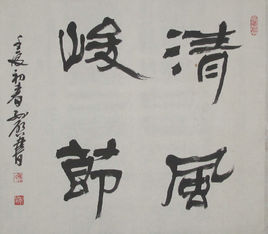 清風
峻節
壬辰初春 書